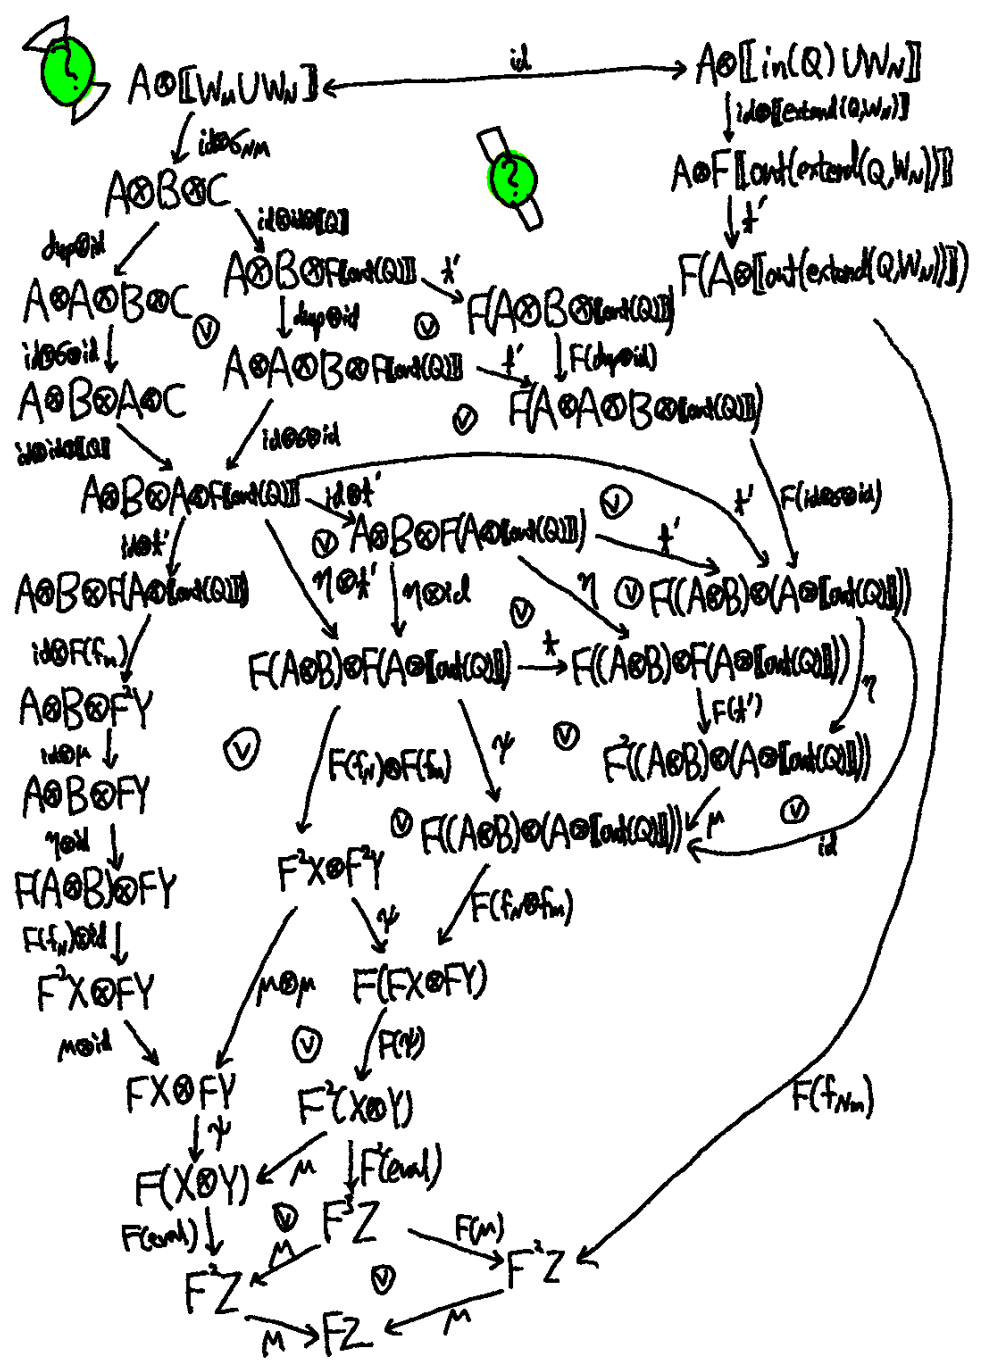 ?
A⊗⟦W_M∪W_N⟧
id
A⊗⟦in(Q)∪W_N⟧
id⊗σ_NM
id⊗⟦extend(Q,W_N)⟧
?
A⊗B⊗C
A⊗F⟦out(extend(Q,W_N))⟧
dup⊗id
id⊗id⊗⟦Q⟧
t'
A⊗A⊗B⊗C
A⊗B⊗F⟦out(Q)⟧
t'
F(A⊗⟦out(extend(Q,W_N))⟧)
✓
dup⊗id
✓
F(A⊗B⊗⟦out(Q)⟧)
id⊗σ⊗id
F(dup⊗id)
A⊗B⊗A⊗C
A⊗A⊗B⊗F⟦out(Q)⟧
t'
F(A⊗A⊗B⊗⟦out(Q)⟧)
id⊗id⊗⟦Q⟧
id⊗σ⊗id
✓
A⊗B⊗A⊗F⟦out(Q)⟧
id⊗t'
✓
t'
F(id⊗σ⊗id)
id⊗t'
✓
A⊗B⊗F(A⊗⟦out(Q)⟧)
t'
A⊗B⊗F(A⊗⟦out(Q)⟧)
η⊗t'
η⊗id
✓
η
✓
F((A⊗B)⊗(A⊗⟦out(Q)⟧))
id⊗F(f_m)
F(A⊗B)⊗F(A⊗⟦out(Q)⟧)
t
F((A⊗B)⊗F(A⊗⟦out(Q)⟧))
A⊗B⊗F²Y
F(t')
η
id⊗μ
✓
F(f_N)⊗F(f_m)
ψ
✓
F²((A⊗B)⊗(A⊗⟦out(Q)⟧))
A⊗B⊗FY
✓
F((A⊗B)⊗(A⊗⟦out(Q)⟧))
μ
✓
id
η⊗id
F(A⊗B)⊗FY
F²X⊗F²Y
F(f_N)⊗id
ψ
F(f_N⊗f_m)
F²X⊗FY
μ⊗μ
F(FX⊗FY)
μ⊗id
✓
F(ψ)
FX⊗FY
F²(X⊗Y)
F(f_Nm)
ψ
μ
F²(eval)
F(X⊗Y)
F(eval)
✓
F³Z
F(μ)
μ
F²Z
✓
F²Z
μ
FZ
μ